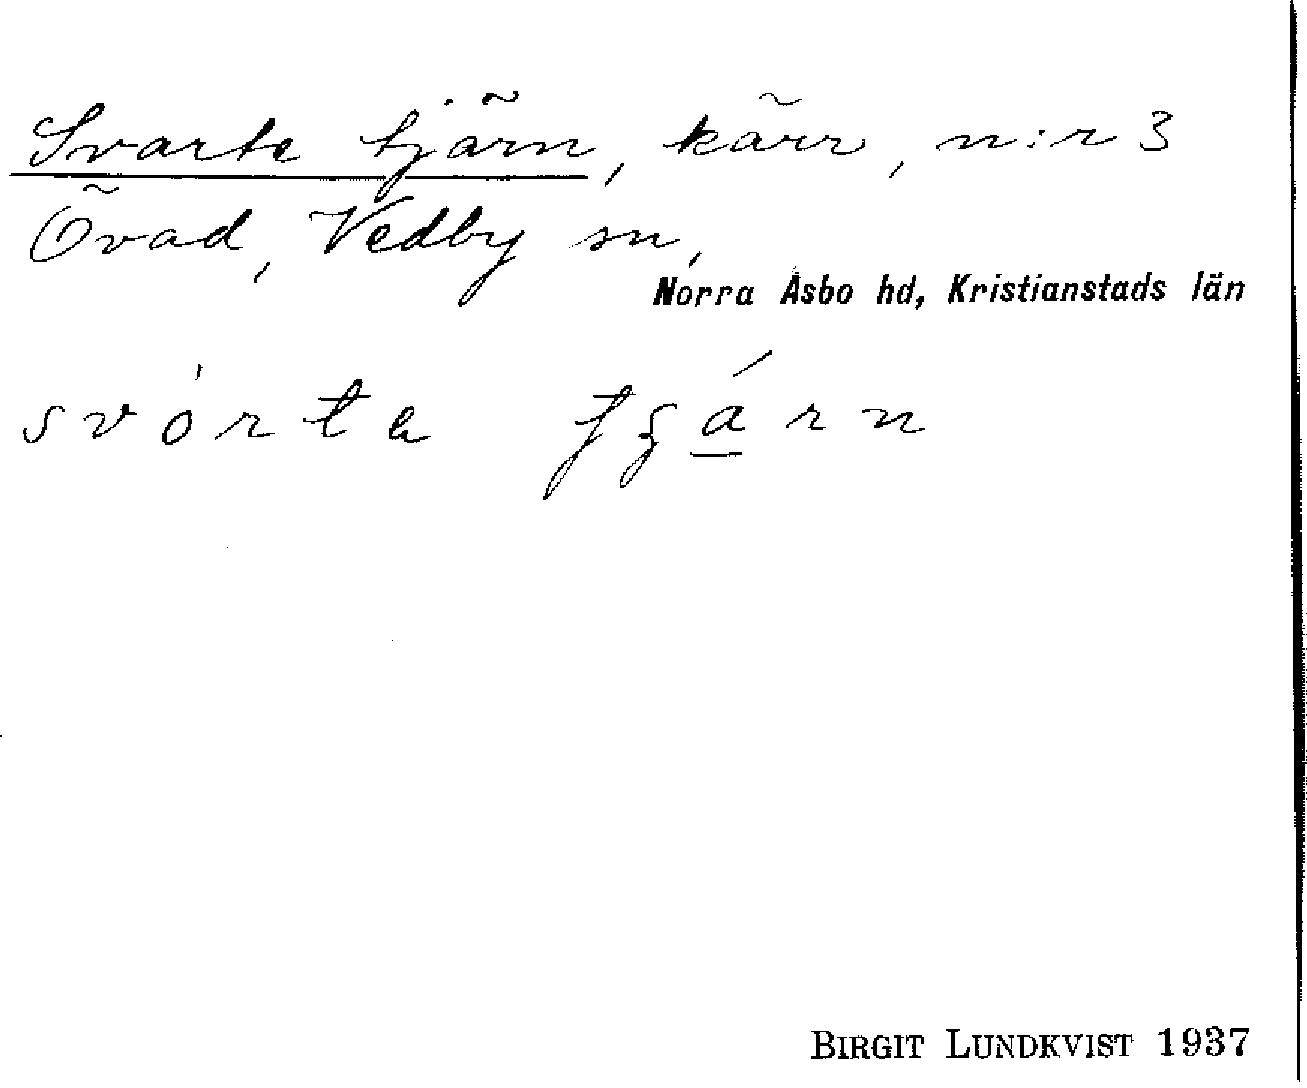 Svarte tjärn, kärr, n:r 3
Övad, Vedby sn,
Norra Åsbo hd, Kristianstads län
BIRGIT LUNDKVIST 1937